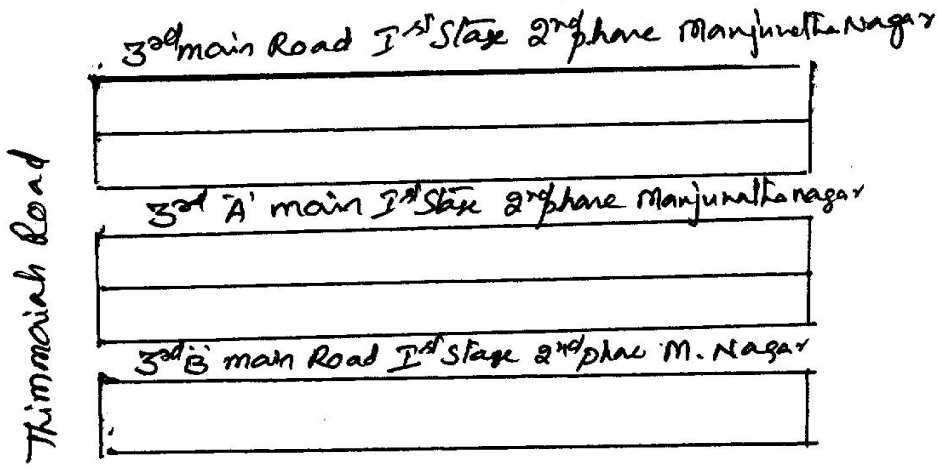 3rd main Road Ist Stage 2nd phase Manjunatha Nagar
3rd 'A' main Ist Stage 2nd phase Manjunatha nagar
3rd 'B' main Road Ist Stage 2nd phae M. Nagar
Thimmaiah Road